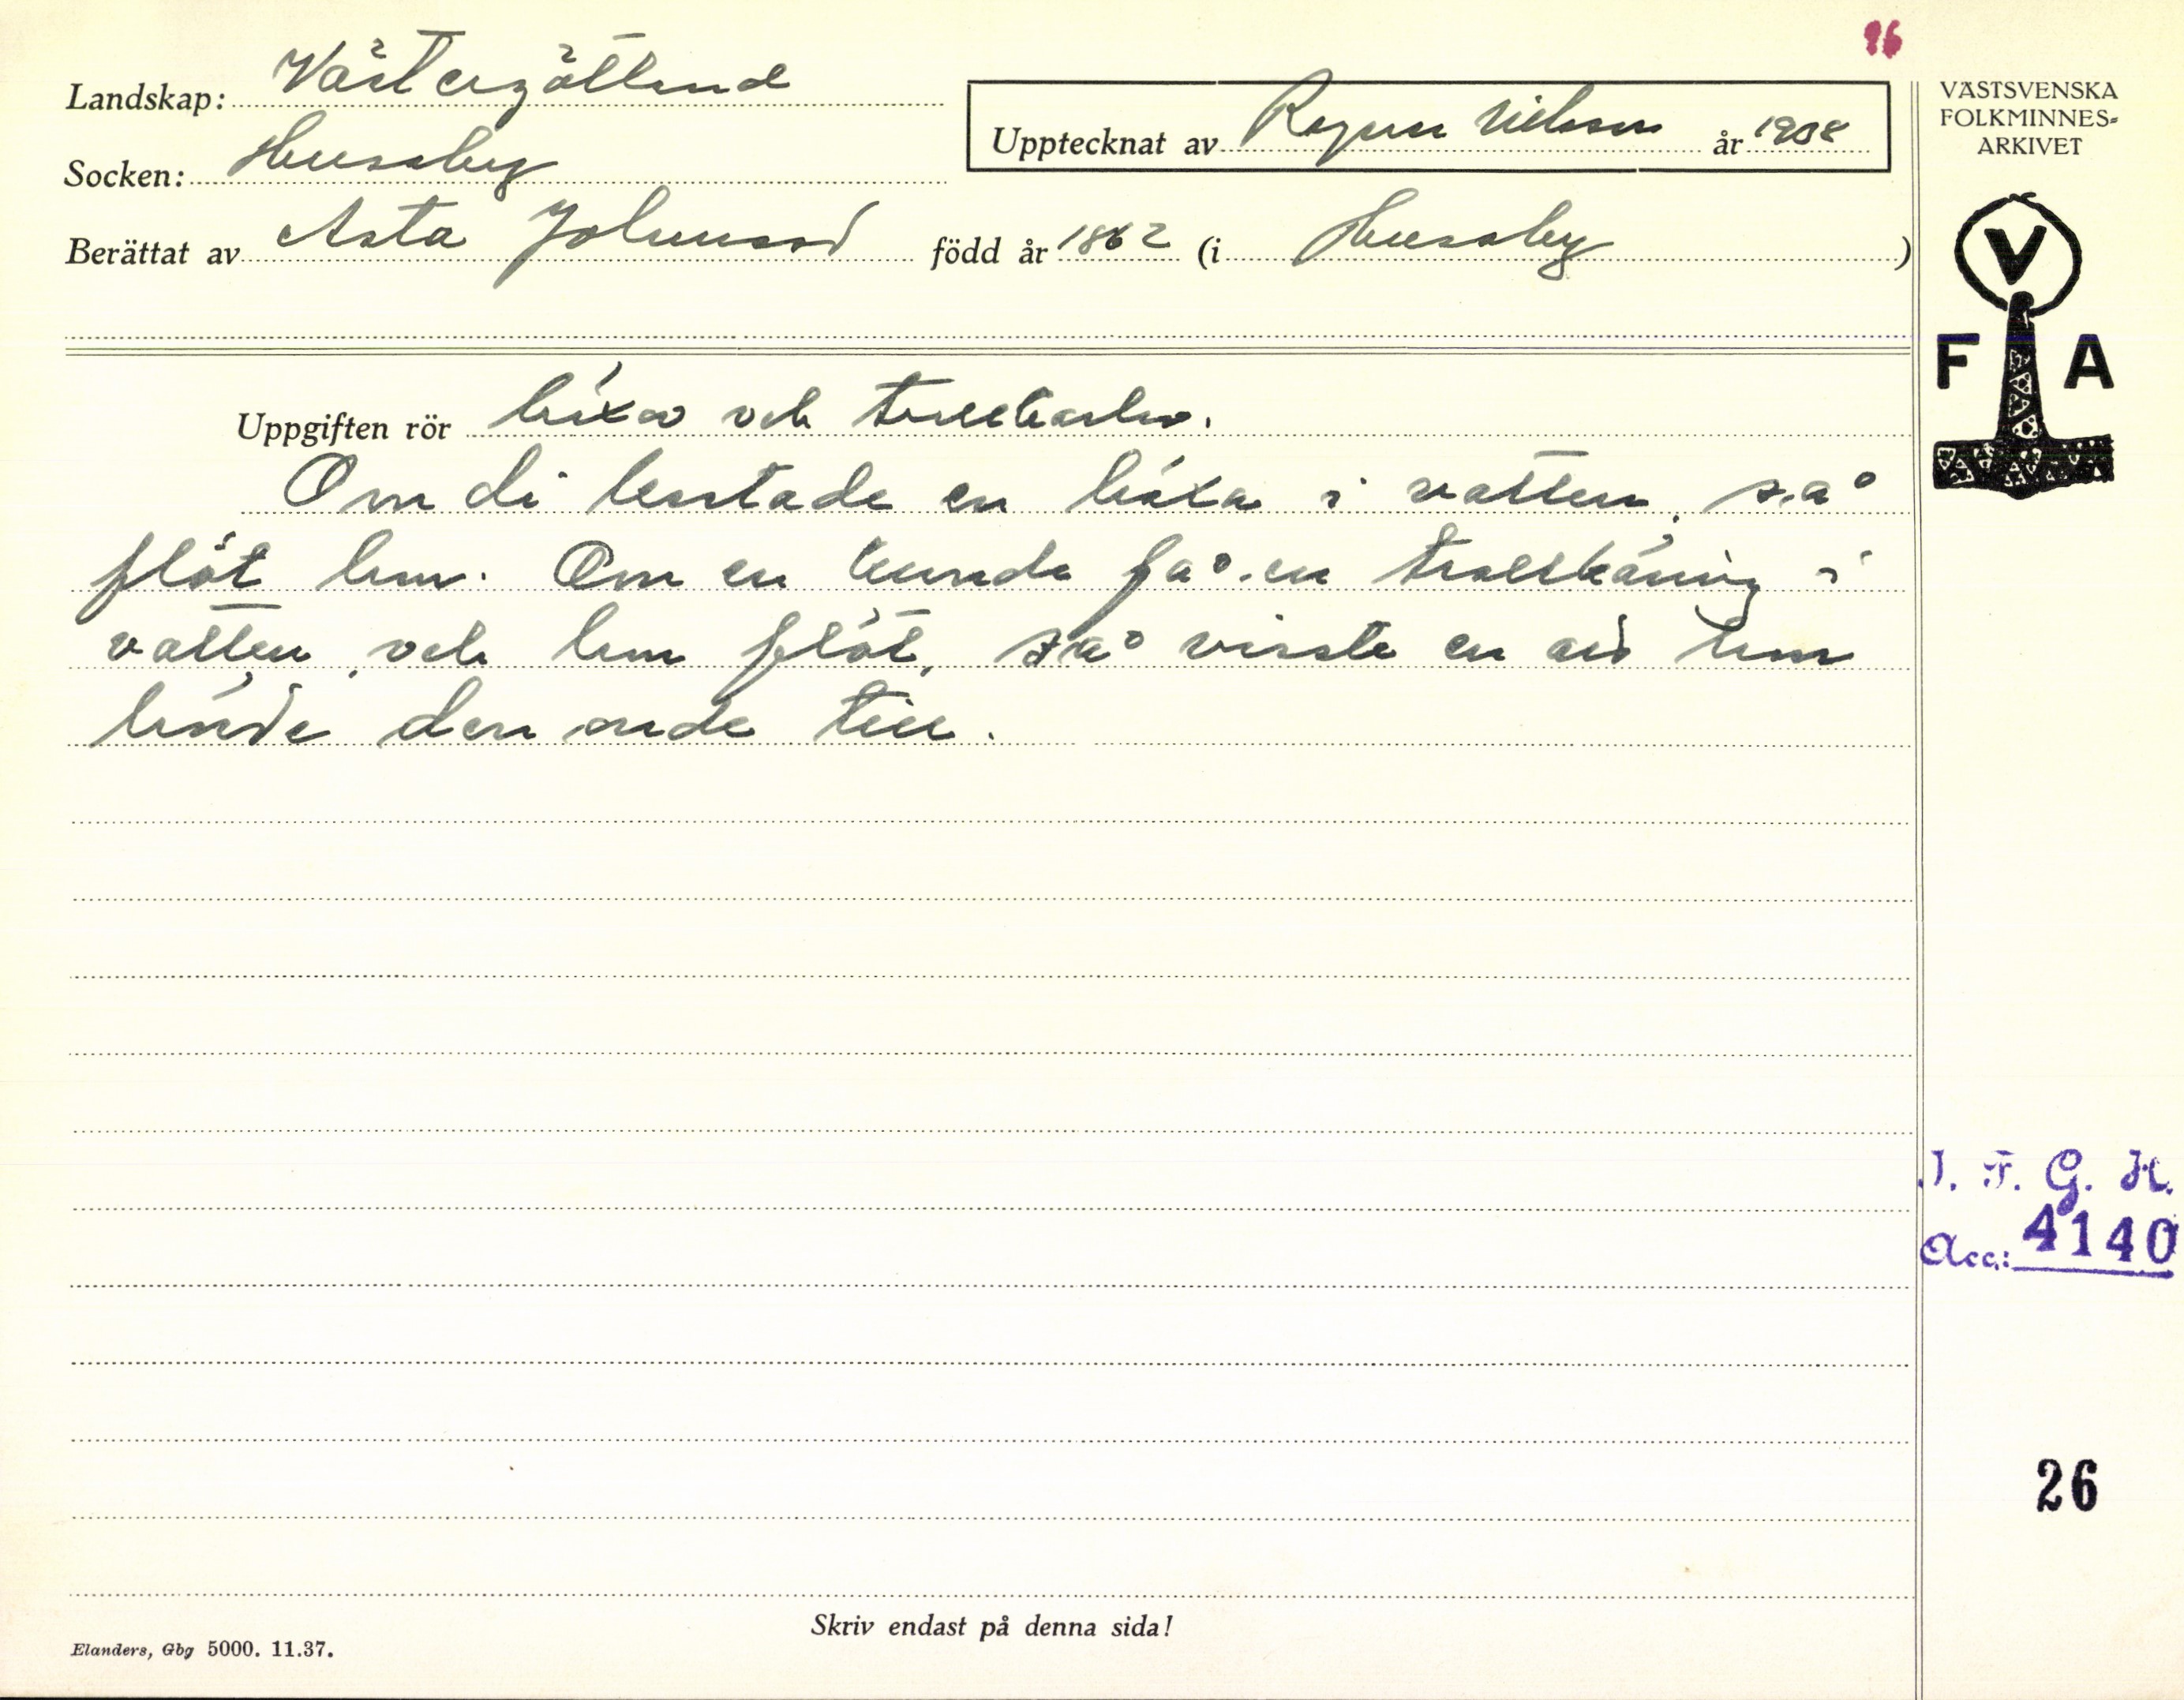 96
Landskap: Västergötland
Upptecknat av Ragnar Nilsson år 1938
Socken: Husaby
Berättat av Asta Johansson född år 1862 (i Husaby)
VÄSTSVENSKA
FOLKMINNES-
ARKIVET
V
F A
Uppgiften rör häxor och trollkarlar.
Om di kastade en häxa i vatten, så
flöt hon. Om en kunde få en trollkäring i
vatten, och hon flöt, så visste en att hon
hörde den onde till.
I. F. G. H.
Acc.: 4140
26
Skriv endast på denna sida!
Elanders, Gbg 5000. 11.37.